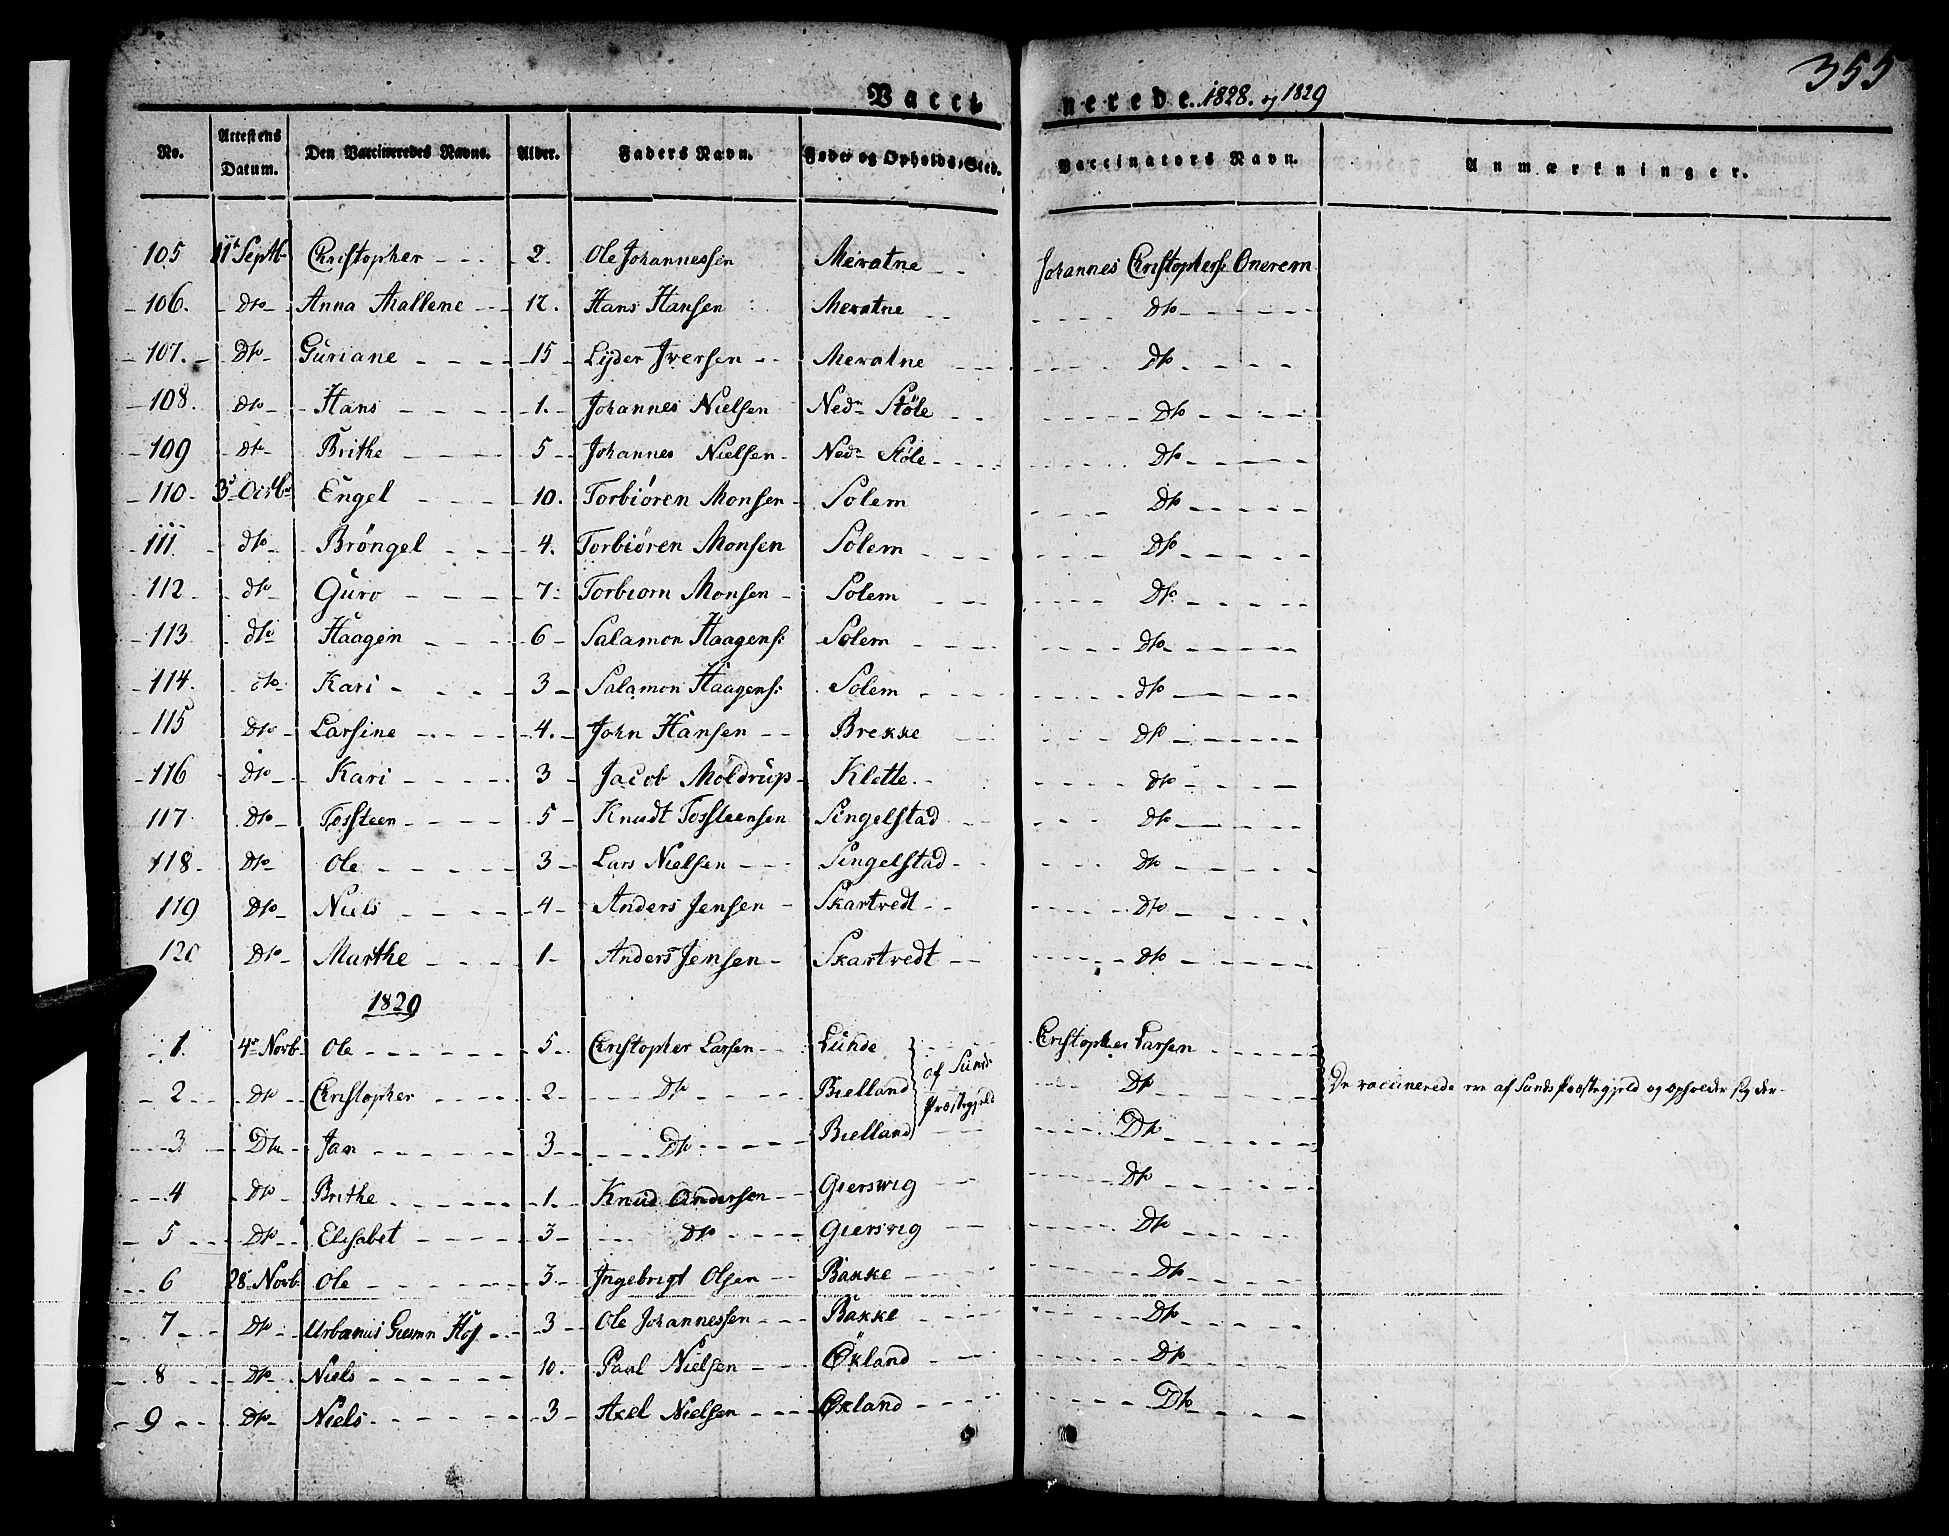 355
Vacci nerede. 1828. og 1829
No. Attestens Datum. Den Vaccineredes Navne. Alder. Faders Navn. Føde og Opholds-Sted. Vaccinators Navn. Anmærkninger.
105 11t Septb Christopher 2. Ole Johannessen Meratne Johannes Christophers: Onerem
106. Dto Anna Mallene 12. Hans Hansen Meratne Dto
107. Dto Guriane 15 Lyder Iversen Meratne Dto
108. Dto Hans 1. Johannes Nielsen Nedr Støle Dto
109 Dto Brithe 5 Johannes Nielsen Nedr Støle Dto
110 3d Octbr Engel 10. Torbiören Monsen Solem Dto
111 Dto Bröngel 4. Torbiören Monsen Solem Dto
112 Dto Guro 7 Torbiorn Monsen Solem Dto
113 Dto Haagen 6 Salamon Haagens: Solem Dto
114. Dto Kari 3 Salamon Haagens: Solem Dto
115 Dto Larsine 4. John Hansen Brekke Dto
116 Dto Kari 3 Jacob Möldrup Klette Dto
117 Dto Tossteen 5 Knudt Tossteensen Singelstad Dto
118. Dto Ole 3 Lars Nielsen Singelstad Dto
119 Dto Niels 4 Anders Jensen Skartvedt Dto
120 Dto Marthe 1 Anders Jensen Skartvedt Dto
1829
1. 4de Novb Ole 5 Christopher Larsen Lunde Christopher Larsen
af Sunds Præstegjeld
2 Dto Christopher 2 Dto Bielland Dto De vaccinerede ere af Sunds Præstegjeld og opholder sig der
3 Dto Jan 3 Dto Bielland Dto
4 Dto Brithe 1. Knud Andersen Gierswig Dto
5 Dto Elisabet 3 Dto Giersvig Dto
6 28 Novb Ole 3 Ingebrigt Olsen Bakke Dto
7 Dto Urbanus 3 Ole Johannessen Bakke Dto
8 Dto Niels 10. Paul Nielsen Økland Dto
9 Dto Niels 3 Axel Nielsen Økland Dto